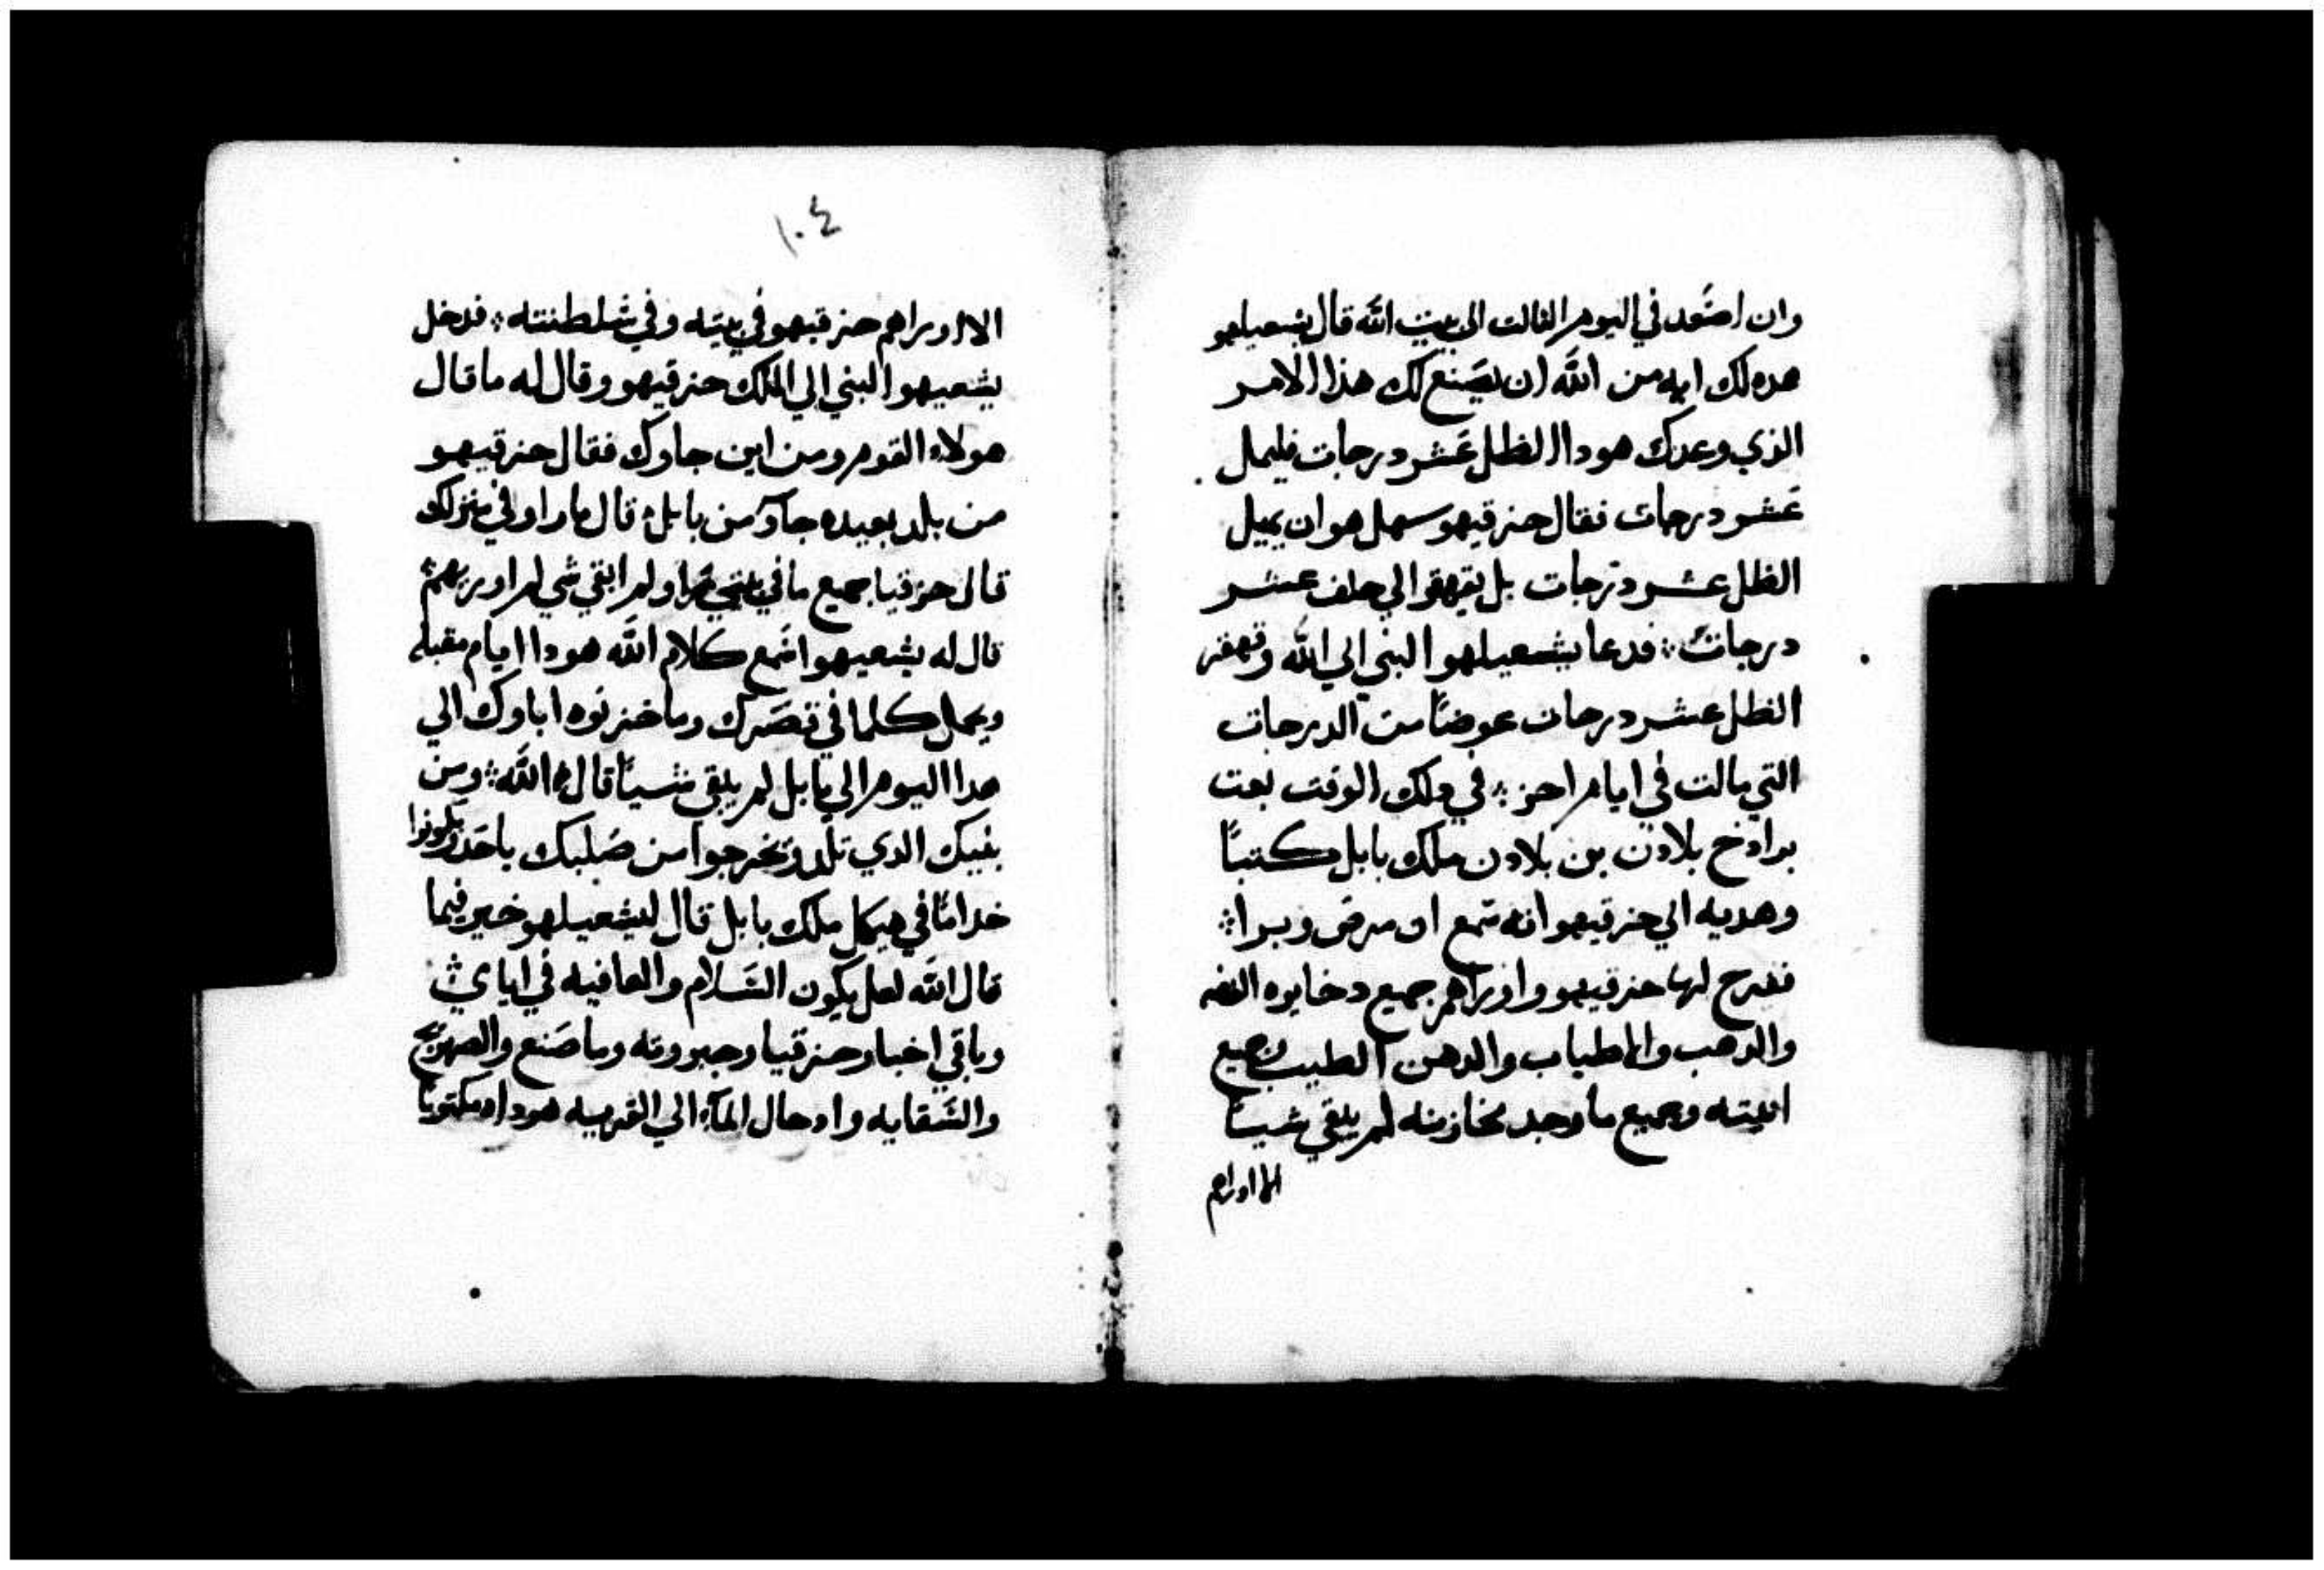 وان اصعد في اليوم الثالت الى بيت الله قال يشعيلهو
هده لك ايه من الله ان يصنع لك هذا الامر
الذي وعدك هودا الظل عشر درجات فليمل
عشر درجات فقال حزقيهو سهل هو ان يميل
الظل عشر درجات بل يقهقر الي خلف عشر
درجات فدعا يشعيلهو النبي الي الله وقهقر
الظل عشر درجات عوضا من الدرجات
التي مالت في ايام احز في دلك الوقت بعت
برادخ بلادن بن بلادن ملك بابل كتبا
وهديه الي حزقيهو انه سمع ان مرض وبرا
ففرح لها حزقيهو واوراهم جميع دخايره الفضه
والدهب والاطياب والدهن الطيب وجميع
انيته وجميع ما وجد مخازنه لم يبقي شيا
الا اوراهم
١٠٤
الا اوراهم حزقيهو في بيته وفي سلطنته فدخل
يشعيهو النبي الي الملك حزقيهو وقال له ما قال
هولاء القوم ومن اين جاوك فقال حزقيهو
من بلد بعيده جاو من بابل قال ما راو في منزلك
قال حزقيا جميع ما في بيتي راو لم ابقي شي لم اوريهم
قال له يشعيهو اسمع كلام الله هودا ايام مقبله
ويحمل كلما في قصرك وما خزنوه اباوك الي
هدا اليوم الي بابل لم يبقي شيا قال الله ومن
بنيك الدي تلد وتخرجوا من صلبك ياخد ويكونوا
خداما في هيكل ملك بابل قال ليشعيلهو خير فيما
قال الله لعل يكون السلام والعافيه في ايامي
وباقي اخبار حزقيا وجبروته وما صنع والصهريج
والسقايه وادخال الماء الي القريه هودا مكتوبا